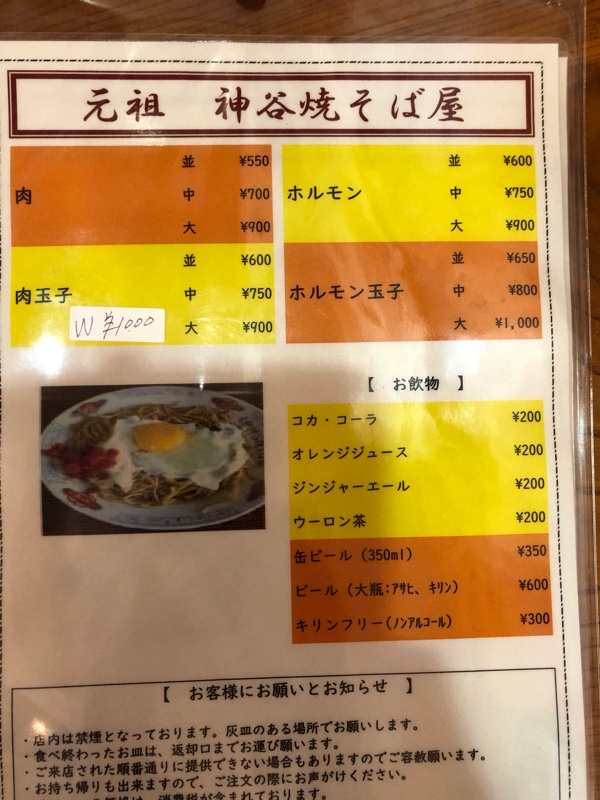 元祖　神谷焼そば屋
肉
並 ¥550
中 ¥700
大 ¥900
肉玉子
並 ¥600
中 ¥750
大 ¥900
W ¥1000
ホルモン
並 ¥600
中 ¥750
大 ¥900
ホルモン玉子
並 ¥650
中 ¥800
大 ¥1,000
【 お飲物 】
コカ・コーラ ¥200
オレンジジュース ¥200
ジンジャーエール ¥200
ウーロン茶 ¥200
缶ビール (350ml) ¥350
ビール (大瓶:ｱｻﾋ、ｷﾘﾝ) ¥600
キリンフリー(ﾉﾝｱﾙｺｰﾙ) ¥300
【 お客様にお願いとお知らせ 】
・店内は禁煙となっております。灰皿のある場所でお願いします。
・食べ終わったお皿は、返却口までお運び願います。
・ご来店された順番通りに提供できない場合もありますのでご容赦願います。
・お持ち帰りも出来ますので、ご注文の際にお声がけください。
は、消費税が含まれております。